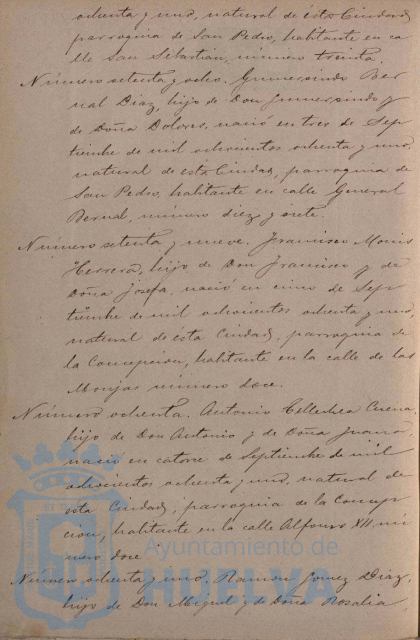 ochenta y uno, natural de esta Ciudad,
parroquia de San Pedro, habitante en ca
lle San Sebastian, número treinta.
Número setenta y ocho. Gumersindo Ber
nal Diaz, hijo de Don Gumersindo y
de Doña Dolores, nació en tres de Sep
tiembre de mil ochocientos ochenta y uno,
natural de esta Ciudad, parroquia de
San Pedro, habitante en calle General
Bernal, número diez y siete.
Número setenta y nueve. Francisco
Herrera, hijo de Don Francisco y de
Doña Josefa, nació en cinco de Sep
tiembre de mil ochocientos ochenta y uno,
natural de esta Ciudad, parroquia de
la Concepcion, habitante en la calle de las
Monjas número doce.
Número ochenta. Antonio Tellechea
hijo de Don Antonio y de Doña Juana
nació en catorce de Septiembre de mil
ochocientos ochenta y uno, natural de
esta Ciudad, parroquia de la Concep
cion, habitante en la calle Alfonso XII, nú
mero doce
Número ochenta y uno. Ramon Gomez Diaz,
hijo de Don Miguel y de Doña Rosalia
Ayuntamiento de
HUELVA